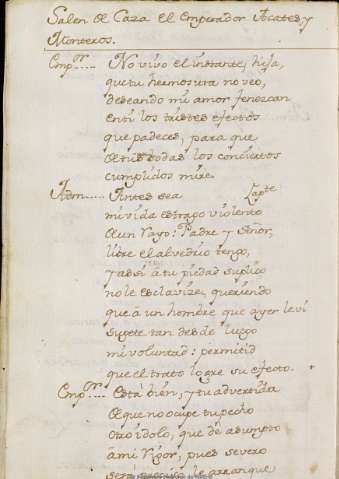 Salen de Caza el Emperador Acates y
Monteros.
Emp.or..... No vivo el instante, hija,
que tu hermosura no veo,
deseando mi amor fenezcan
en ti los tristes efectos
que padeces, para que
de tus bodas los conciertos
cumplidos mire.
Adm..... Antes sea apte
mi vida estrago violento
de un Rayo: Padre y Señor,
libre el alvedrio tengo,
y assi à tu piedad suplico
no le esclavize, queriendo
que à un hombre que ayer le vi
sugete tan desde luego
mi voluntad: permitid
que el trato logre su efecto.
Emp.or.... Està bien, y tu advertida
de que no ocupe tu pecho
otro idolo, que dè assumpto
à mi rigor, pues severo
serà preciso le arranque